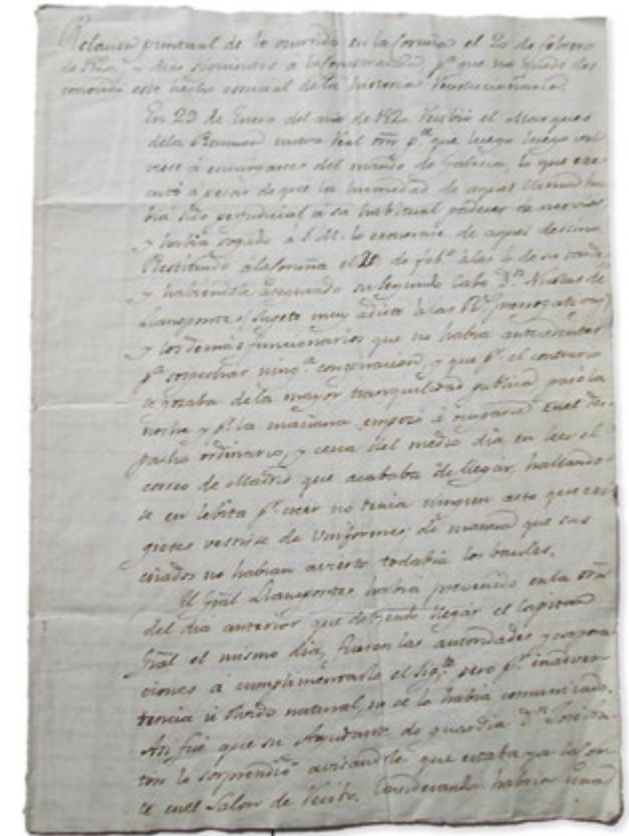 Relacion puntual de lo ocurrido en la Coruña el 20 de febrero
de 1820, y dias siguientes a la conspiracion pª que no quede des
conocido este hecho esencial de la historia Revolucionaria.
En 29 de Enero del año de 1820 recibió el Marques
de la nueva Real orn pª que luego luego vol
viese á encargarse del mando de Galicia, lo que exe
cutó á pesar de que la humedad de aquel clima ha
bia sido perjudicial á su habitual padecer de nervios
y habia rogado á S. M. lo exonerase de aquel destino
Restituido á la Coruña el 20 de febº á las 4 de su tarde
y habiendole asegurado su segundo Cabo Dn Nicolas de
Llanponte (sugeto muy adicto á las Rs prerrogativas)
y los demas funcionarios que no habia antecedentes
pª sospechar ningª conspiracion y que pr el contrario
se gozaba de la mayor tranquilidad publica pasó la
noche y pr la mañana empezó á ocuparse en el des
pacho ordinario, y cerca del medio dia en leer el
correo de Madrid que acababa de llegar, hallando
se en lebita pr creer no tenia ningun acto que exi
giese vestirse de Uniforme; de manera que sus
criados no habian avierto todabia los baules.
El Gral Llanponte habia prevenido en la orn
del dia anterior que debiendo llegar el Capitan
Gral el mismo dia, fuesen las autoridades y corpora
ciones á cumplimentarlo el sigte pero pr inadver
tencia u olvido natural, no se lo habia comunicado.
Asi fue que su Ayudante de guardia Dn
lo sorprendió avisandole que estaba ya la Cor
te en el Salon de Recibo. Considerando habria una